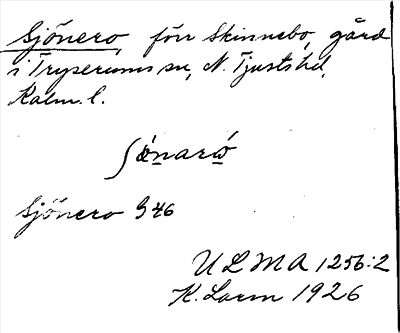 Sjönero, förr Skinnebo, gård
i Tryserums sn, N. Tjusts hd,
Kalm. l.
Sjönero G 46
ULMA 1256:2
K. Lorm 1926